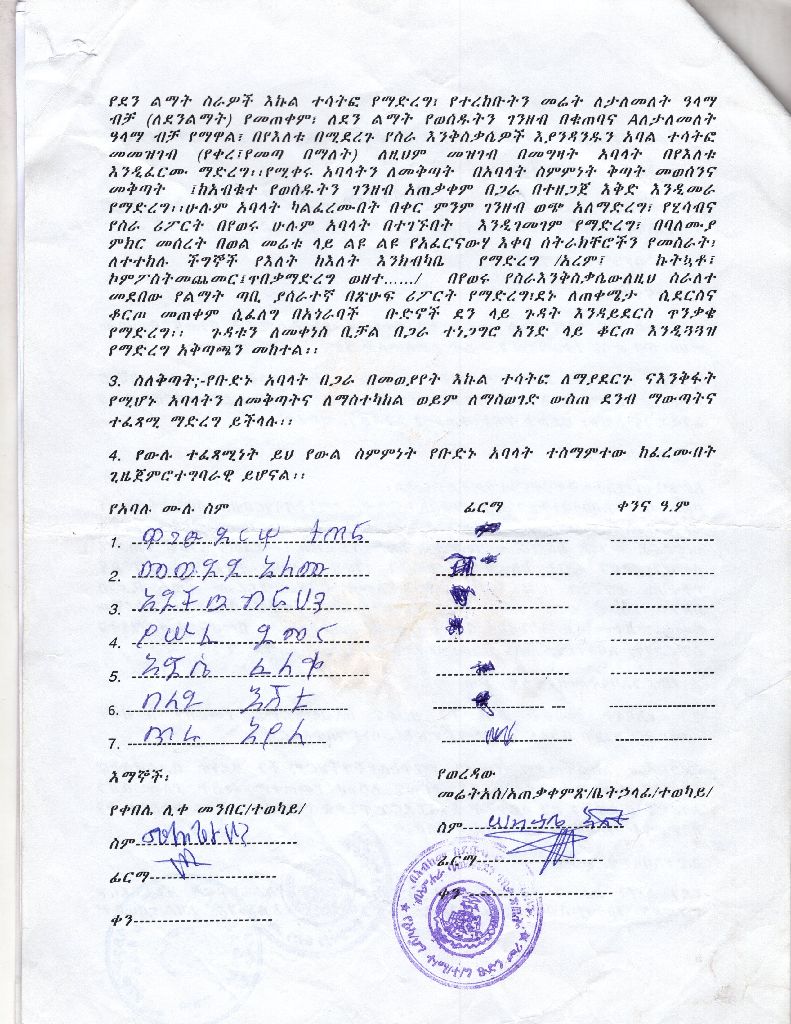 የደን ልማት ስራዎች እኩል ተሳትፎ የማድረግ፣ የተረከቡትን መሬት ለታለመለት ዓላማ
ብቻ (ለደንልማት) የመጠቀም፣ ለደን ልማት የወሰዱትን ገንዘብ በቁጠባና Aለታለመለት
ዓላማ ብቻ የማዋል፣ በየእለቱ በሚደረጉ የስራ እንቅስቃሴዎች እያንዳንዱን አባል ተሳትፎ
መመዝገብ (የቀረ፣የመጣ በማለት) ለዚህም መዝገብ በመግዛት አባላት በየእለቱ
እንዲፈርሙ ማድረግ፡፡የሚቀሩ አባላትን ለመቅጣት በአባላት ስምምነት ቅጣት መወሰንና
መቅጣት ፤ከአብቁተ የወሰዱትን ገንዘብ አጠቃቀም በጋራ በተዘጋጀ እቅድ እንዲመራ
የማድረግ፡፡ሁሉም አባላት ካልፈረሙበት በቀር ምንም ገንዘብ ወጭ አለማድረግ፣ የሂሳብና
የስራ ሪፖርት በየወሩ ሁሉም አባላት በተገኙበት እንዲገመገም የማድረግ፣ በባለሙያ
ምክር መሰረት በወል መሬቱ ላይ ልዩ ልዩ የአፈርናውሃ እቀባ ስትራክቸሮችን የመስራት፣
ለተተከሉ ችግኞች የእለት ከእለት እንክብካቤ የማድረግ /አረም፣ ኩትኳቶ፣
ኮምፖስትመጨመር፤ጥበቃማድረግ ወዘተ....../ በየወሩ የስራእንቅስቃሴውለዚህ ስራለተ
መደበው የልማት ጣቢ ያሰራተኛ በጽሁፍ ሪፖርት የማድረግ፤ደኑ ለጠቀሜታ ሲደርስና
ቆርጦ መጠቀም ሲፈለግ በአጎራባች ቡድኖች ደን ላይ ጉዳት እንዳይደርስ ጥንቃቄ
የማድረግ፡፡ ጉዳቱን ለመቀነስ ቢቻል በጋራ ተነጋግሮ አንድ ላይ ቆርጦ እንዲጓጓዝ
የማድረግ አቅጣጫን መከተል፡፡
3. ስለቅጣት፤-የቡድኑ አባላት በጋራ በመወያየት እኩል ተሳትፎ ለማያደርጉ ናእንቅፋት
የሚሆኑ አባላትን ለመቅጣትና ለማስተካከል ወይም ለማስወገድ ውስጠ ደንብ ማውጣትና
ተፈጻሚ ማድረግ ይችላሉ፡፡
4. የውሉ ተፈጻሚነት ይህ የውል ስምምነት የቡድኑ አባላት ተስማምተው ከፈረሙበት
ጊዜጀምሮተግባራዊ ይሆናል፡፡
የአባሉ ሙሉ ስም ፊርማ ቀንና ዓ.ም
1.
2. አለሙ
3. ብርሀን
4.
5. ፈለቀ
6. እሸቴ
7. አየለ
እማኞች፡
የቀበሌ ሊቀ መንበር/ተወካይ/
ስም
ፊርማ
ቀን
የወረዳው
መሬትአስ/አጠቃቀምጽ/ቤትኃላፊ/ተወካይ/
ስም እሸቴ
ፊርማ
ቀን